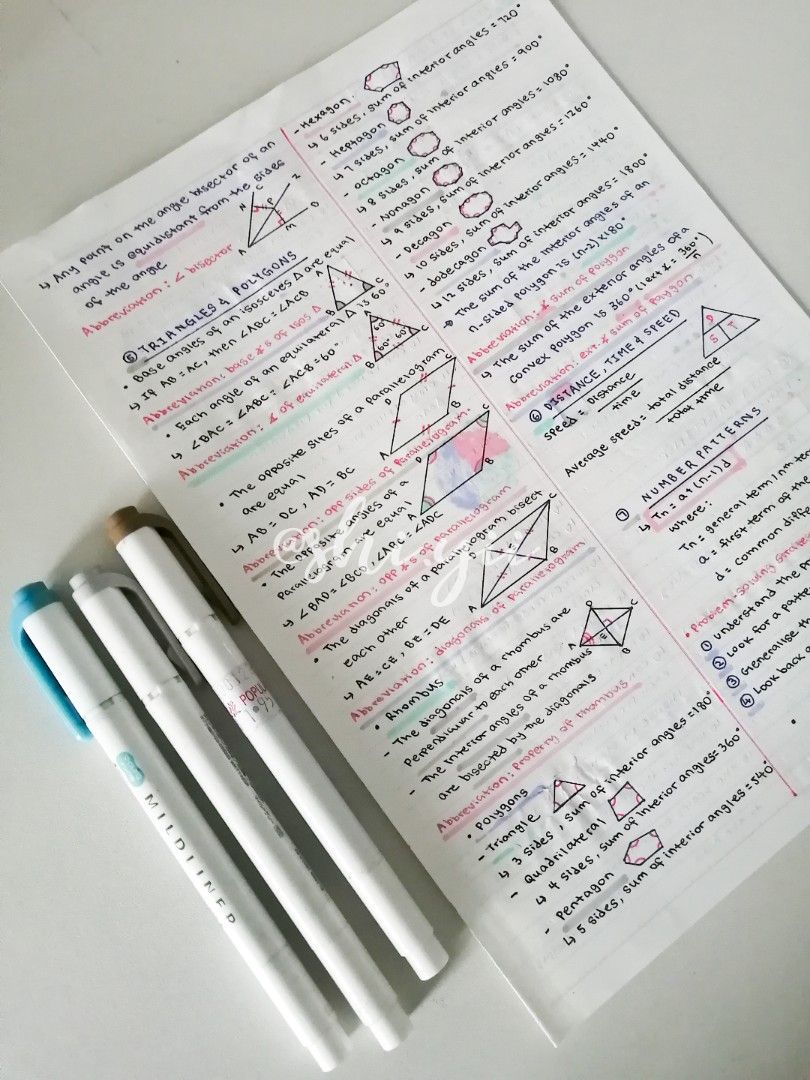 ↳ Any point on the angle bisector of an
angle is equidistant from the sides
of the angle
N C P Z
A M D
Abbreviation: ∠ bisector
⑤ TRIANGLES & POLYGONS
• Base angles of an isosceles Δ are equal
↳ If AB = AC, then ∠ABC = ∠ACB
A B C
Abbreviation: base ∡s of isos Δ
• Each angle of an equilateral Δ is 60°
↳ ∠BAC = ∠ABC = ∠ACB = 60°
A B C 60° 60° 60°
Abbreviation: ∡ of equilateral Δ
• The opposite sites of a parallelogram
are equal
↳ AB = DC, AD = BC
D C
A B
Abbreviation: opp sides of parallelogram
• The opposite angles of a
parallelogram are equal
↳ ∠BAD = ∠BCD, ∠ABC = ∠ADC
D C
A B
Abbreviation: opp ∡s of parallelogram
• The diagonals of a parallelogram bisect
each other
↳ AE = CE, BE = DE
D C
A B
Abbreviation: diagonals of parallelogram
• Rhombus
- The diagonals of a rhombus are
perpendicular to each other
- The interior angles of a rhombus
are bisected by the diagonals
D C
A B
Abbreviation: Property of rhombus
• Polygons
- Triangle
↳ 3 sides, sum of interior angles = 180°
- Quadrilateral
↳ 4 sides, sum of interior angles = 360°
- Pentagon
↳ 5 sides, sum of interior angles = 540°
- Hexagon
↳ 6 sides, sum of interior angles = 720°
- Heptagon
↳ 7 sides, sum of interior angles = 900°
- octagon
↳ 8 sides, sum of interior angles = 1080°
- Nonagon
↳ 9 sides, sum of interior angles = 1260°
- Decagon
↳ 10 sides, sum of interior angles = 1440°
- dodecagon
↳ 12 sides, sum of interior angles = 1800°
→ The sum of the interior angles of an
n-sided polygon is (n-2) × 180°
Abbreviation: ∡ sum of polygon
↳ The sum of the exterior angles of a
convex polygon is 360° (1 ext ∡ = 360°/n)
Abbreviation: ext. ∡ sum of polygon
⑥ DISTANCE, TIME & SPEED
Speed = Distance / time
D
S T
Average speed = total distance / total time
⑦ NUMBER PATTERNS
↳ Tn = a + (n-1)d
where:
Tn = general term / n
a = first term of the
d = common differ
• Problem-solving
① Understand the
② Look for a patte
③ Generalise
④ Look back
MILDLINER
POPU